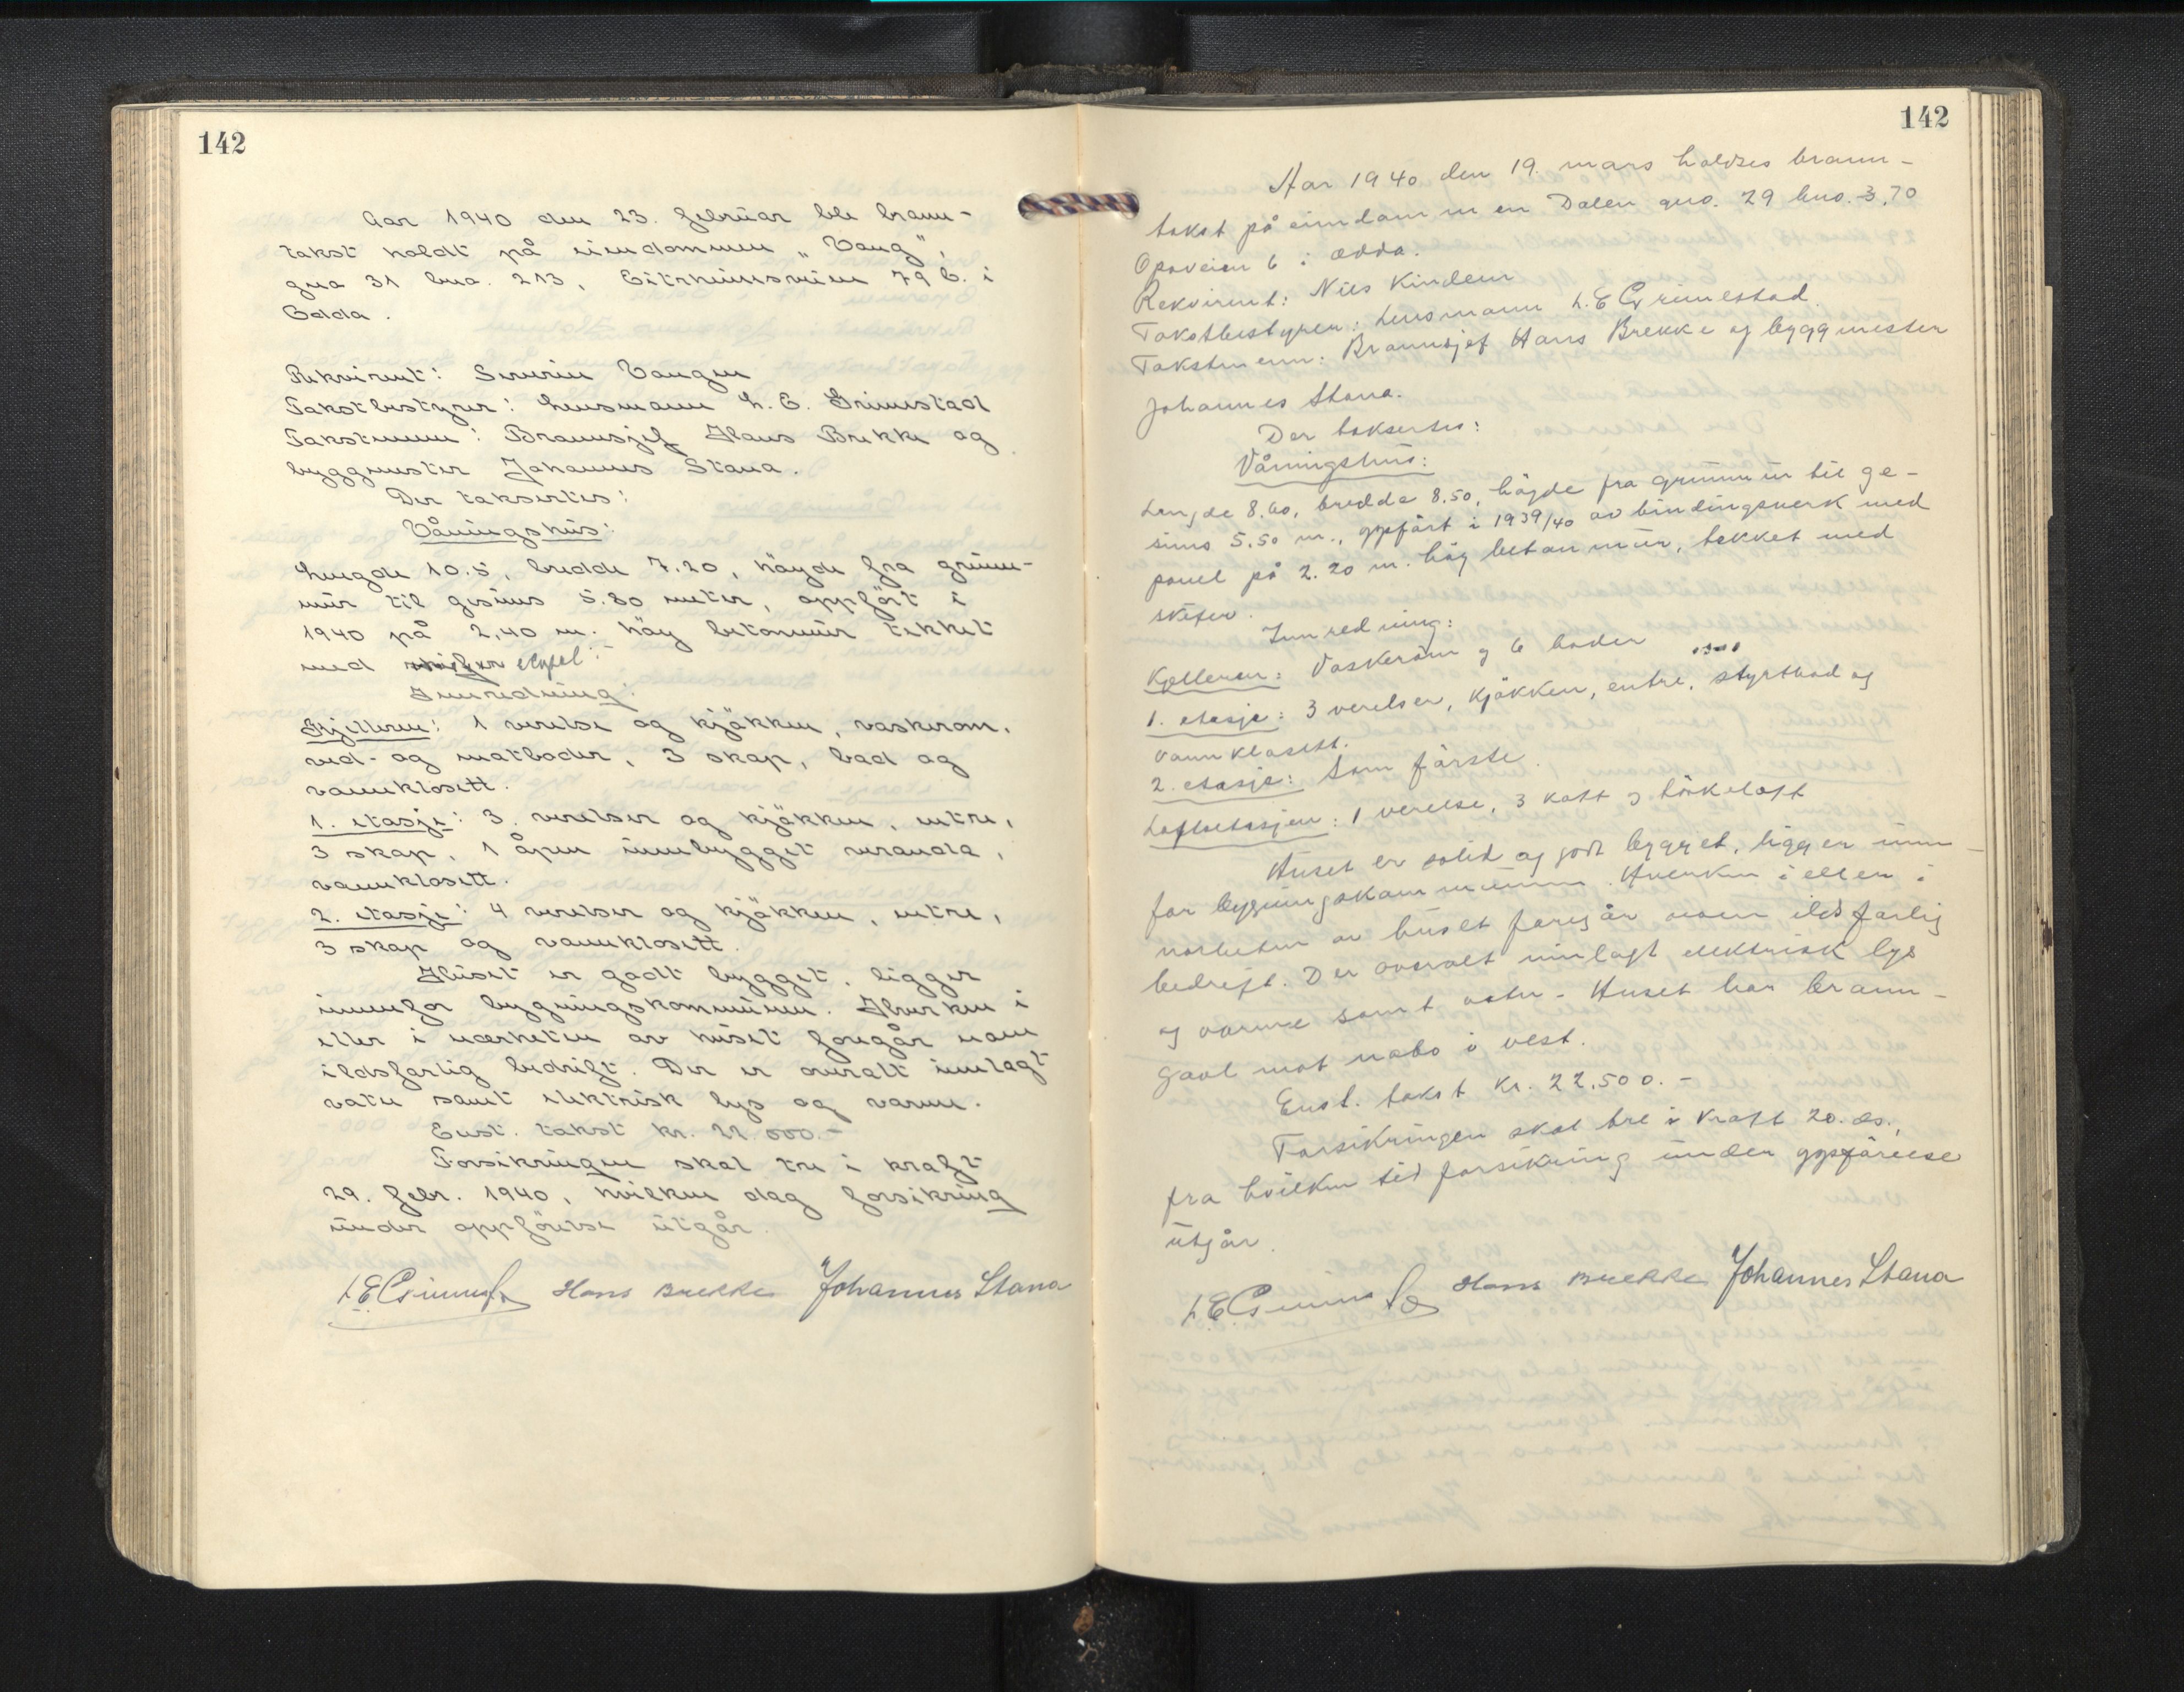 142
Aar 1940 den 23. februar ble brann-
takst holdt på eiendommen „Vang",
gno 31 bno. 213, Eitrheimsveien 79 b. i
Odda.
Rekvirent: Severin Vangen
Takstbestyrer: Lensmann L. E. Grimestad
Takstmenn: Brannsjef Hans Brekke og
byggmester Johannes Stana.
Der taksertes:
Våningshus:
Lengde 10.5, bredde 7.20, høyde fra grunn-
mur til gesims 5.80 meter, oppført i
1940 på 2,40 m. høy betonmur tekket
med
Innredning:
Kjelleren: 1 verelse og kjøkken, vaskerom,
ved- og matboder, 3 skap, bad og
vannklosett.
1. etasje: 3 verelser og kjøkken, entre,
3 skap, 1 åpen innebygget veranda,
vannklosett.
2. etasje: 4 verelser og kjøkken, entre,
3 skap og vannklosett.
Huset er godt bygget, ligger
innenfor bygningskommunen. Hverken i
eller i nærheten av huset foregår noen
ildsfarlig bedrift. Der er overalt innlagt
vatn samt elektrisk lys og varme.
Enst. takst kr. 22.000.-
Forsikringen skal tre i kraft
29. febr. 1940, hvilken dag forsikring
under oppførelse utgår.
L E Grimestad Hans Brekke Johannes Stana
142
Aar 1940 den 19. mars holdtes brann-
takst på eiendommen Dalen gno. 29 bno. 3,70
Opoveien 6 i Odda.
Rekvirent: Nils Kindem
Takstbestyrer: Lensmann L. E Grimestad.
Takstmenn: Brannsjef Hans Brekke og byggmester
Johannes Stana.
Der taksertes:
Våningshus:
Lengde 8.60, bredde 8.50, høyde fra grunnmur til ge-
sims 5.50 m., oppført i 1939/40 av bindingsverk med
panel på 2.20 m. høy betonmur, tekket med
skifer.
Innredning:
Kjelleren: Vaskerom og 6 boder
1. etasje: 3 verelser, kjøkken, entre, styrtbad og
vannklosett.
2. etasje: Som første.
Loftsetasjen: 1 verelse, 3 kott og tørkeloft
Huset er solid og godt bygget, ligger innen-
for bygningskommunen. Hverken i eller i
nærheten av huset foregår noen ildsfarlig
bedrift. Der overalt innlagt elektrisk lys
og varme samt vatn. Huset har brann-
gavl mot nabo i vest.
Enst. takst Kr. 22.500.-
Forsikringen skal tre i kraft 20. ds.,
fra hvilken tid forsikring under oppførelse
utgår.
L E Grimestad Hans Brekke Johannes Stana